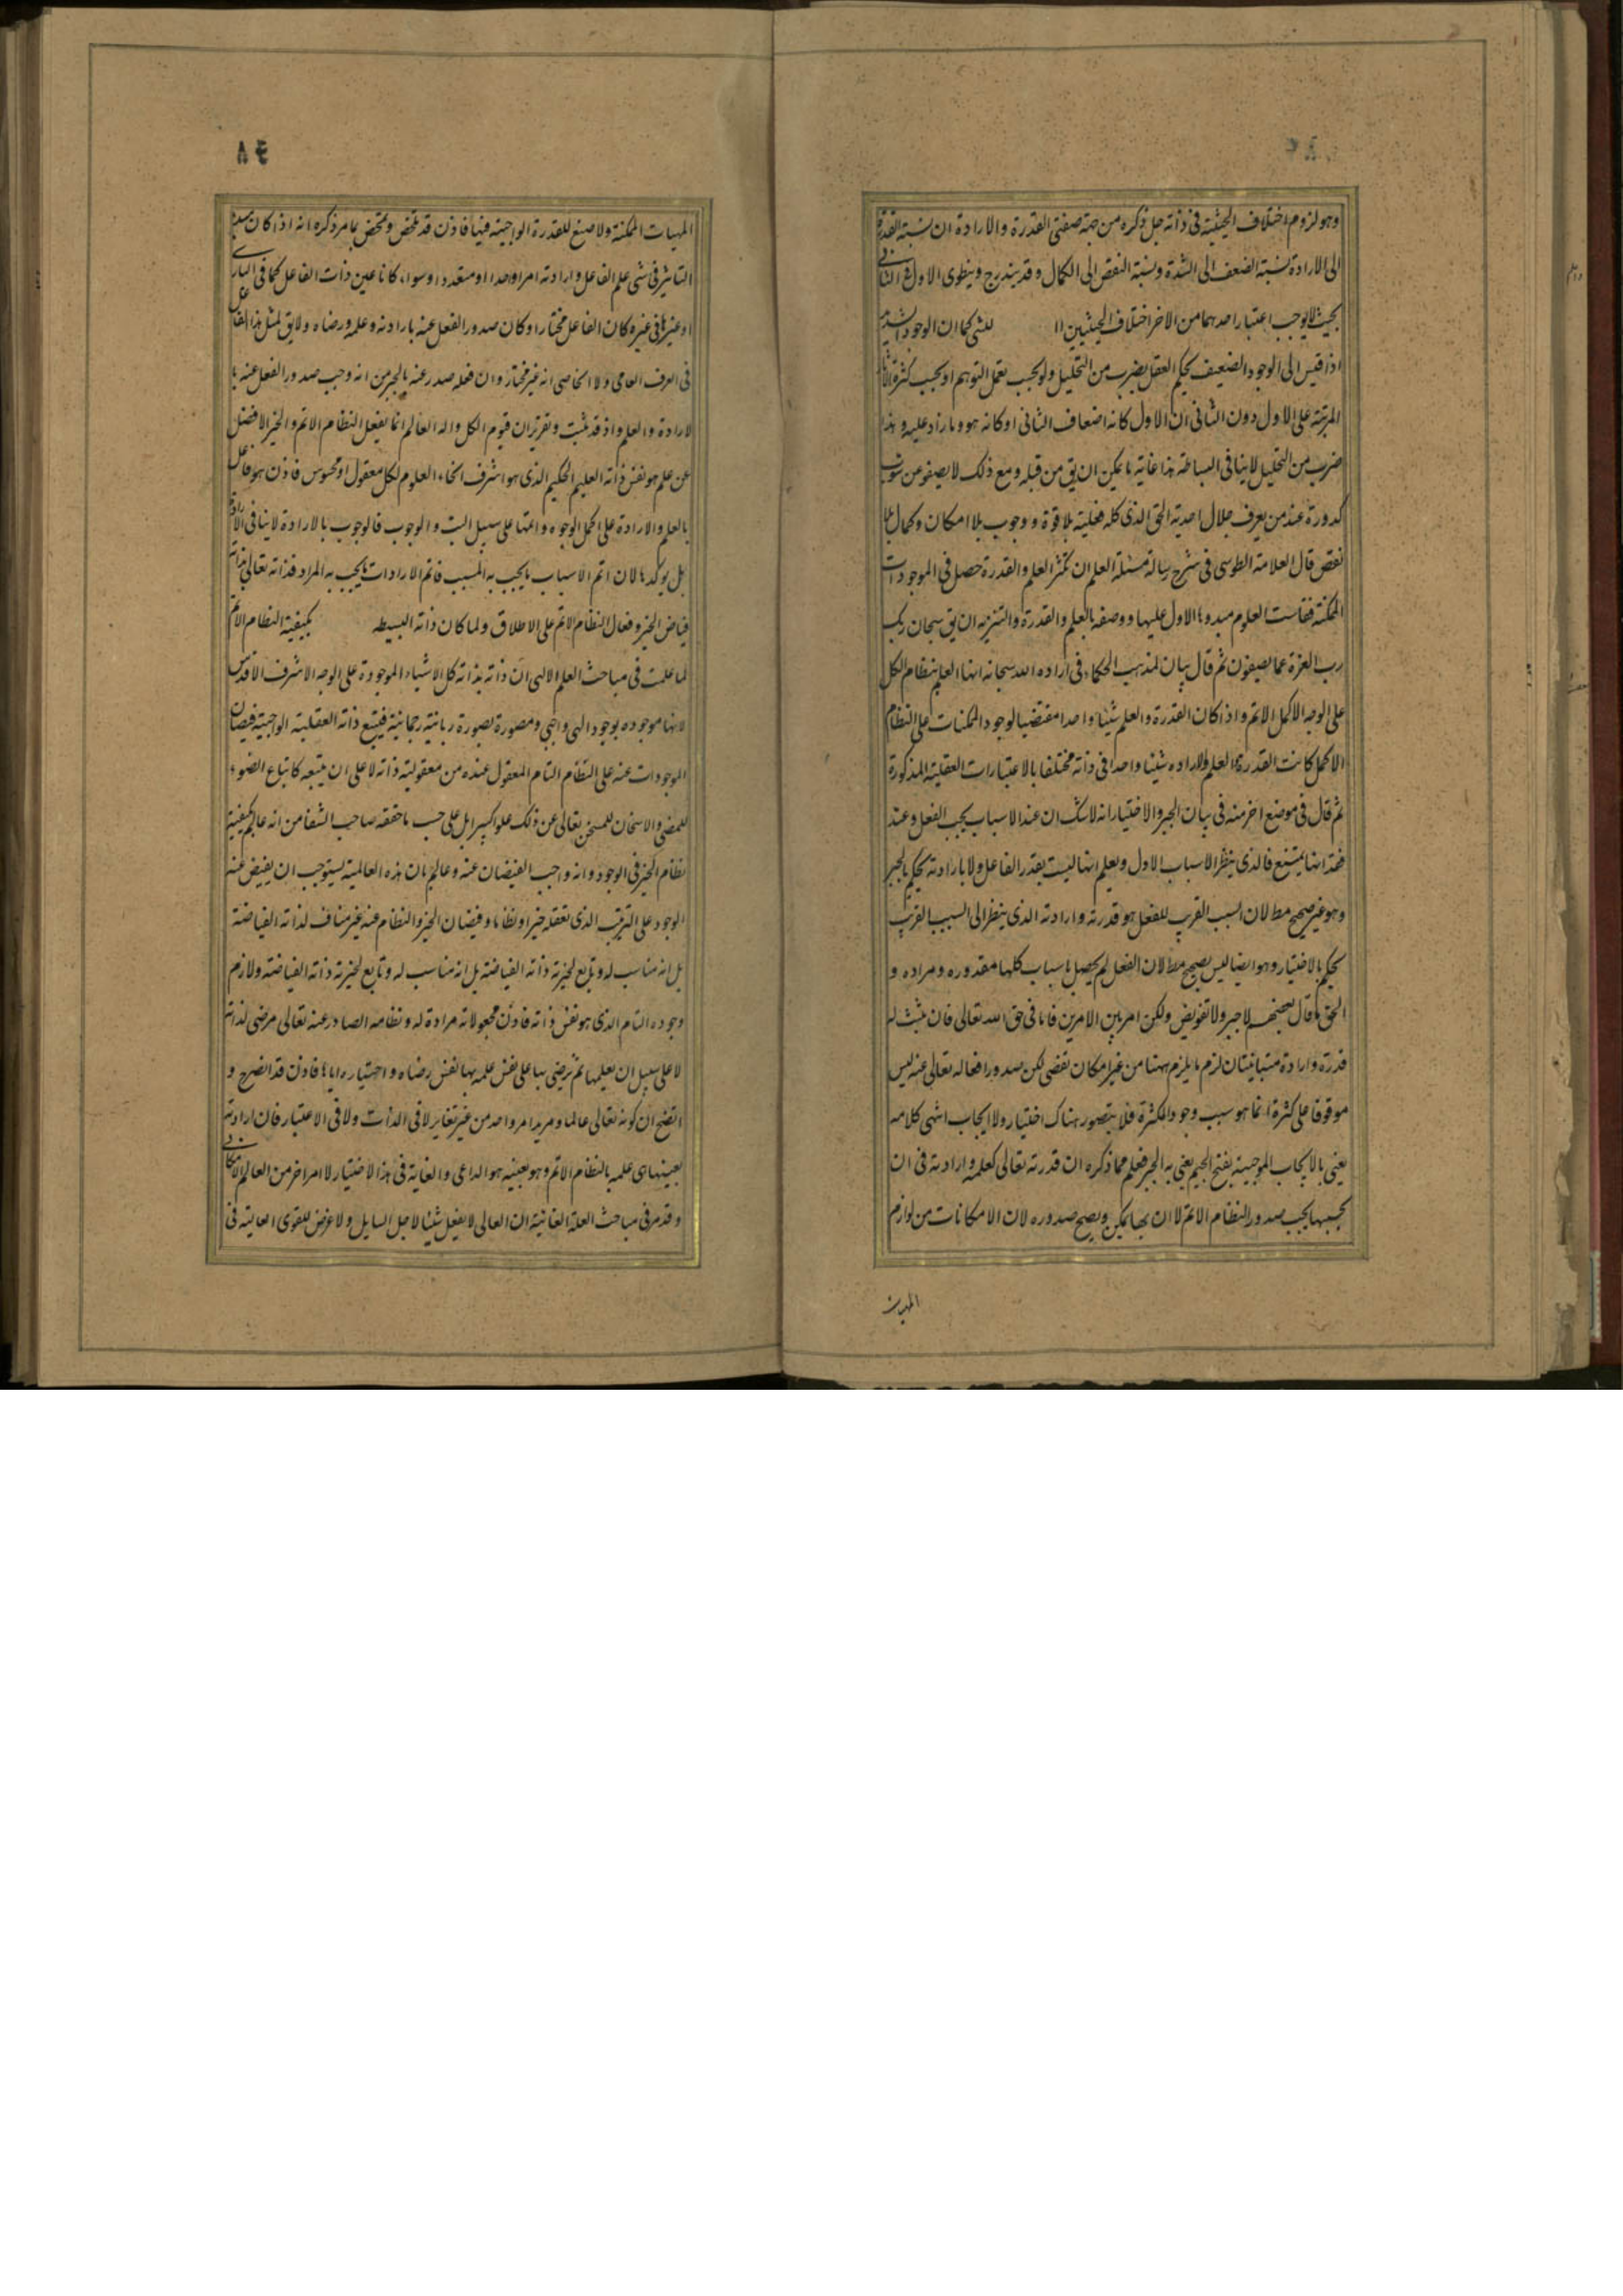 وهو لزوم اختلاف الحيثية في ذاته جل ذكره من جهة صفتي القدرة والارادة ان نسبة القدرة
الى الارادة نسبة الضعف الى الشدة ونسبة النقص الى الكمال وقد يندرج وينطوى الاول في الثاني
بحيث لا يوجب اعتبار احدهما من الاخر اختلاف الحيثيتين للشى كما ان الوجود الشديد
اذا قيس الى الوجود الضعيف يحكم العقل بضرب من التحليل ولو بحسب تعمل التوهم او بحسب كثرة الاثار
المرتبة على الاول دون الثاني ان الاول كانه اضعاف الثاني او كانه هو وما زاد عليه وهذا
ضرب من التحليل لا ينافي البساطة هذا غاية ما يمكن ان يق من قبله ومع ذلك لا يصفو عن شوب
كدورة عند من يعرف جلال احدية الحق الذى كله فعلية بلا قوة ووجوب بلا امكان وكمال بلا
نقص قال العلامة الطوسى في شرح رسالة مسئلة العلم ان تكثر العلم والقدرة حصل في الموجودات
الممكنة فقاست العلوم مبدوها الاول عليها ووصفه بالعلم والقدرة والتنزيه ان يق سبحان ربك
رب العزة عما يصفون ثم قال بيان لمذهب الحكماء في اراده الله سبحانه انها العلم بنظام الكل
على الوجه الاكمل الاتم واذا كان القدرة والعلم شيئا واحدا مقتضيا لوجود الممكنات على النظام
الاكمل كانت القدرة والعلم والاراده شيئا واحدا في ذاته مختلفا بالاعتبارات العقلية المذكورة
ثم قال في موضع اخر منه في بيان الجبر والاختيار انه لاشك ان عند الاسباب يجب الفعل وعند
فقدانها يمتنع فالذى ينظر الاسباب الاول ويعلم انها ليست بقدر الفاعل ولا بارادته يحكم بالجبر
وهو غير صحيح مط لان السبب القريب للفعل هو قدرته وارادته الذى ينظر الى السبب القريب
يحكم بالاختيار وهو ايضا ليس بصحيح مط لان الفعل لم يحصل باسباب كلها مقدوره ومراده و
الحق ما قال بعضهم لا جبر ولا تفويض ولكن امر بين الامرين فاما في حق الله تعالى فان يثبت له
قدرة وارادة متباينتان لزم ما يلزم ههنا من غير امكان تفصى لكن صدور افعاله تعالى عنه ليس
موقوفا على كثرة انما هو سبب وجود الكثرة فلا يتصور هناك اختيار ولا ايجاب انتهى كلامه
يعني بالايجاب الموجبية بفتح الجيم يعني به الجبر فعلم مما ذكره ان قدرته تعالى كعلمه وارادته في ان
بحسبها يجب صدور النظام الاتم لا ان بها يمكن ويصح صدوره لان الامكانات من لوازم
المهيات
٨٤
المهيات الممكنة ولا صنع للقدرة الواجبية فيها فاذن قد تلخص وتمحض بما مر ذكره انه اذا كان مبدء
التاثير في شى علم الفاعل وارادته امرا واحدا او متعددا وسواء كانا عين ذات الفاعل كما في البارى
او غيرها في غيره كان الفاعل مختارا وكان صدور الفعل عنه بارادته وعلمه ورضاه ولا يق لمثل هذا الفاعل
في العرف العامى ولا الخاصى انه غير مختار وان فعله صدر عنه بالجبر من انه وجب صدور الفعل عنه با
لارادة والعلم واذ قد ثبت وتقرر ان قيوم الكل واله العالم انما يفعل النظام الاتم والخير الافضل
عن علم هو نفس ذاته العليم الحكيم الذى هو اشرف انحاء العلوم لكل معقول او محسوس فاذن هو فاعل
بالعلم والارادة على اكمل الوجوه واتمها على سبيل البت والوجوب فالوجوب بالارادة لا ينافى الارادة
بل يوكدها لان اتم الاسباب ما يجب به المسبب فاتم الارادات ما يجب به المراد فذاته تعالى بذاته
فياض الخير وفعال النظام الاتم على الاطلاق ولما كان ذاته البسيطه بكيفية النظام الاتم
لما علمت في مباحث العلم الالهى ان ذاته بذاته كل الاشياء الموجودة على الوجه الاشرف الاقدس
لانها موجوده بوجود الهى واجبى ومصورة بصورة ربانية رحمانية فيتبع ذاته العقلية الواجبية فيضان
الموجودات عنه على النظام التام المعقول عنده من معقولية ذاته لا على ان يتبعه كاتباع الضوء
للمضى والاسخان للمسخن تعالى عن ذلك علوا كبيرا بل على حسب ما حققه صاحب الشفا من انه عالم بكيفية
نظام الخير في الوجود وانه واجب الفيضان عنه وعالم بان هذه العالمية يستوجب ان يفيض عنه
الوجود على الترتيب الذى تعقله خيرا ونظاما وفيضان الخير والنظام عنه غير مناف لذاته الفياضة
بل انه مناسب له وتابع لخيرية ذاته الفياضة بل انه مناسب له وتابع لخيرية ذاته الفياضه ولازم
وجوده التام الذى هو نفس ذاته فاذن مجعولاته مرادة له ونظامه الصادر عنه تعالى مرضى لذاته
لا على سبيل ان يعلمها ثم يرضى بها على نفس علمه بها نفس رضاه واختياره اياها فاذن قد انصرح و
اتضح ان كونه تعالى عالما ومريدا امر واحد من غير تغاير لا في الذات ولا في الاعتبار فان ارادته
بعينها هى علمه بالنظام الاتم وهو بعينه هو الداعى والغاية في هذا الاختيار لا امر اخر من العالم الامكانى
وقد مر في مباحث العلة الغائية ان العالى لا يفعل شيئا لاجل السافل ولا غرض للقوى العالية في